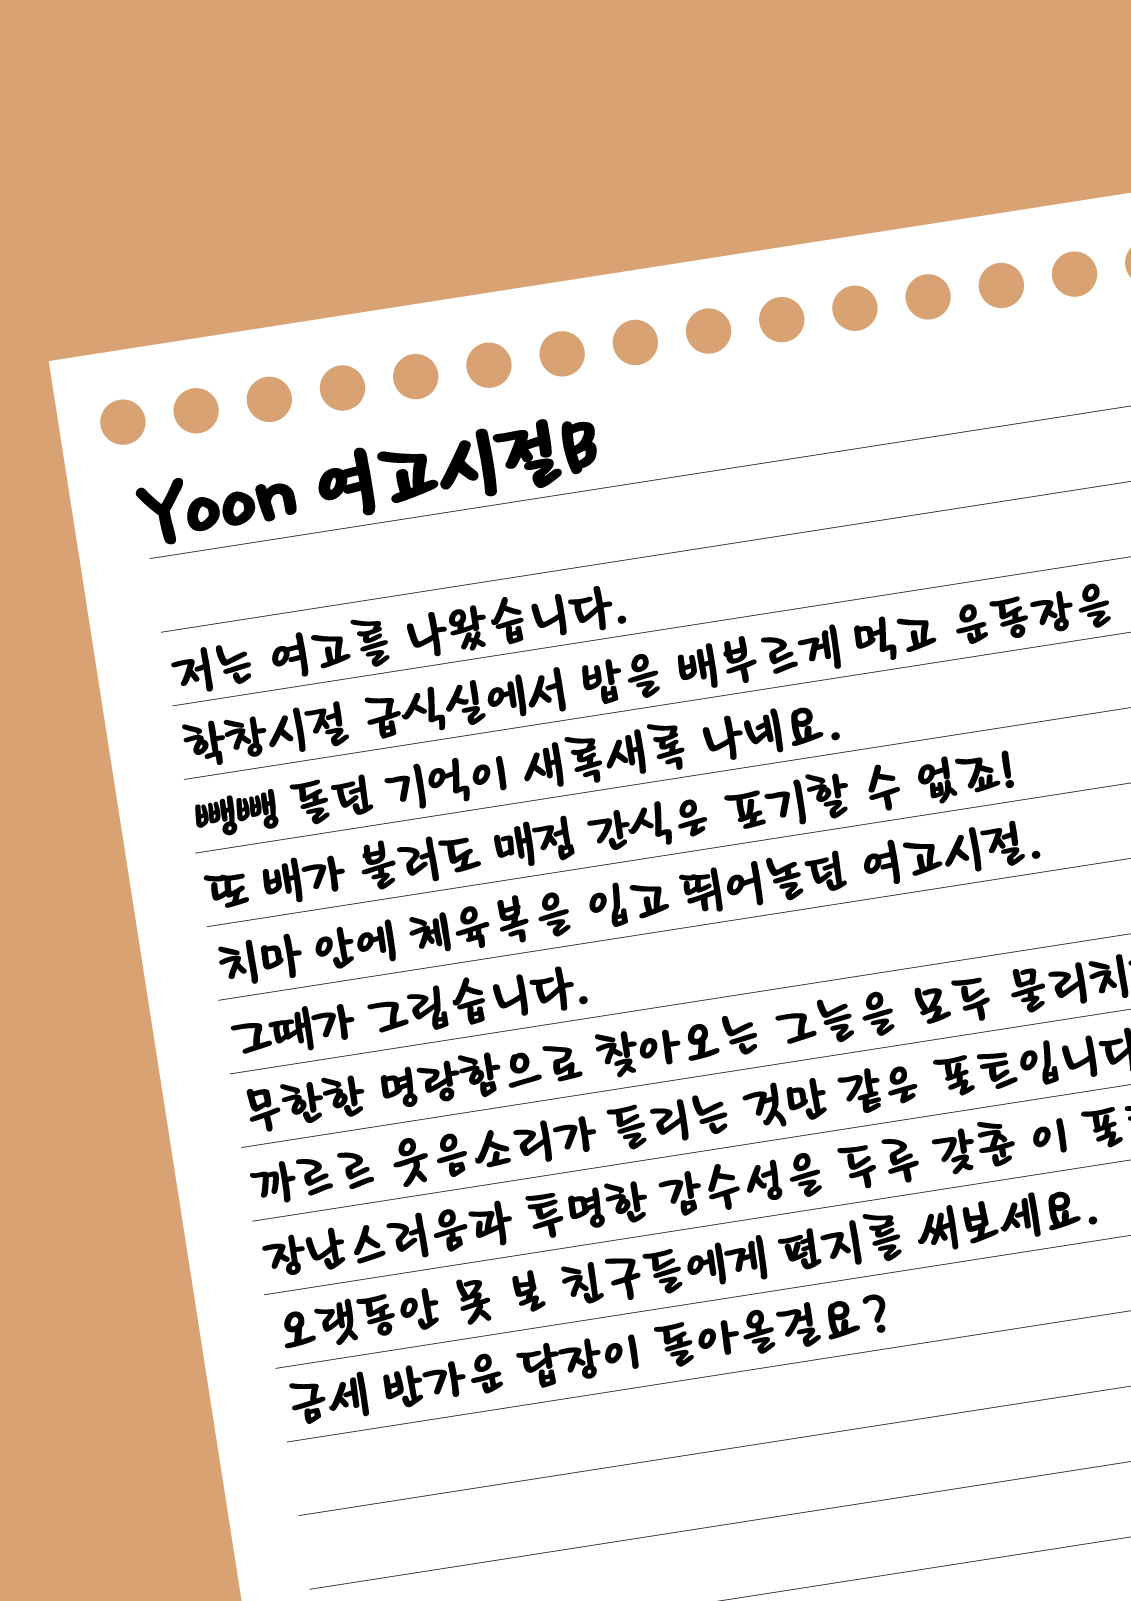 Yoon 여고시절B
저는 여고를 나왔습니다.
학창시절 급식실에서 밥을 배부르게 먹고 운동장을
뺑뺑 돌던 기억이 새록새록 나네요.
또 배가 불러도 매점 간식은 포기할 수 없죠!
치마 안에 체육복을 입고 뛰어놀던 여고시절.
그때가 그립습니다.
무한한 명랑함으로 찾아오는 그늘을 모두 물리치
까르르 웃음소리가 들리는 것만 같은 폰트입니다
장난스러움과 투명한 감수성을 두루 갖춘 이
오랫동안 못 본 친구들에게 편지를 써보세요.
금세 반가운 답장이 돌아올걸요?